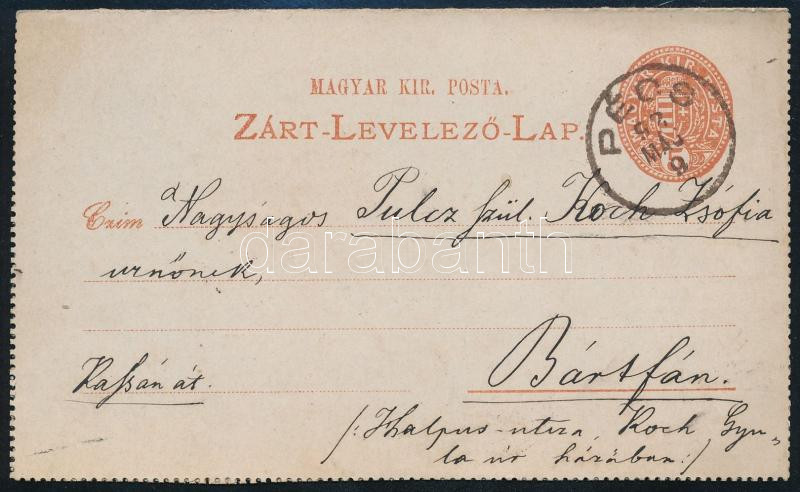 MAGYAR KIR. POSTA.
ZÁRT-LEVELEZŐ-LAP.
PÉCS
MÁJ
Czim Nagyságos Pulcz szül. Koch Zsófia
urnőnek,
darabanth
Kassán át.
Bártfán.
/: utcza, Koch Gyu„
la úr házában :/